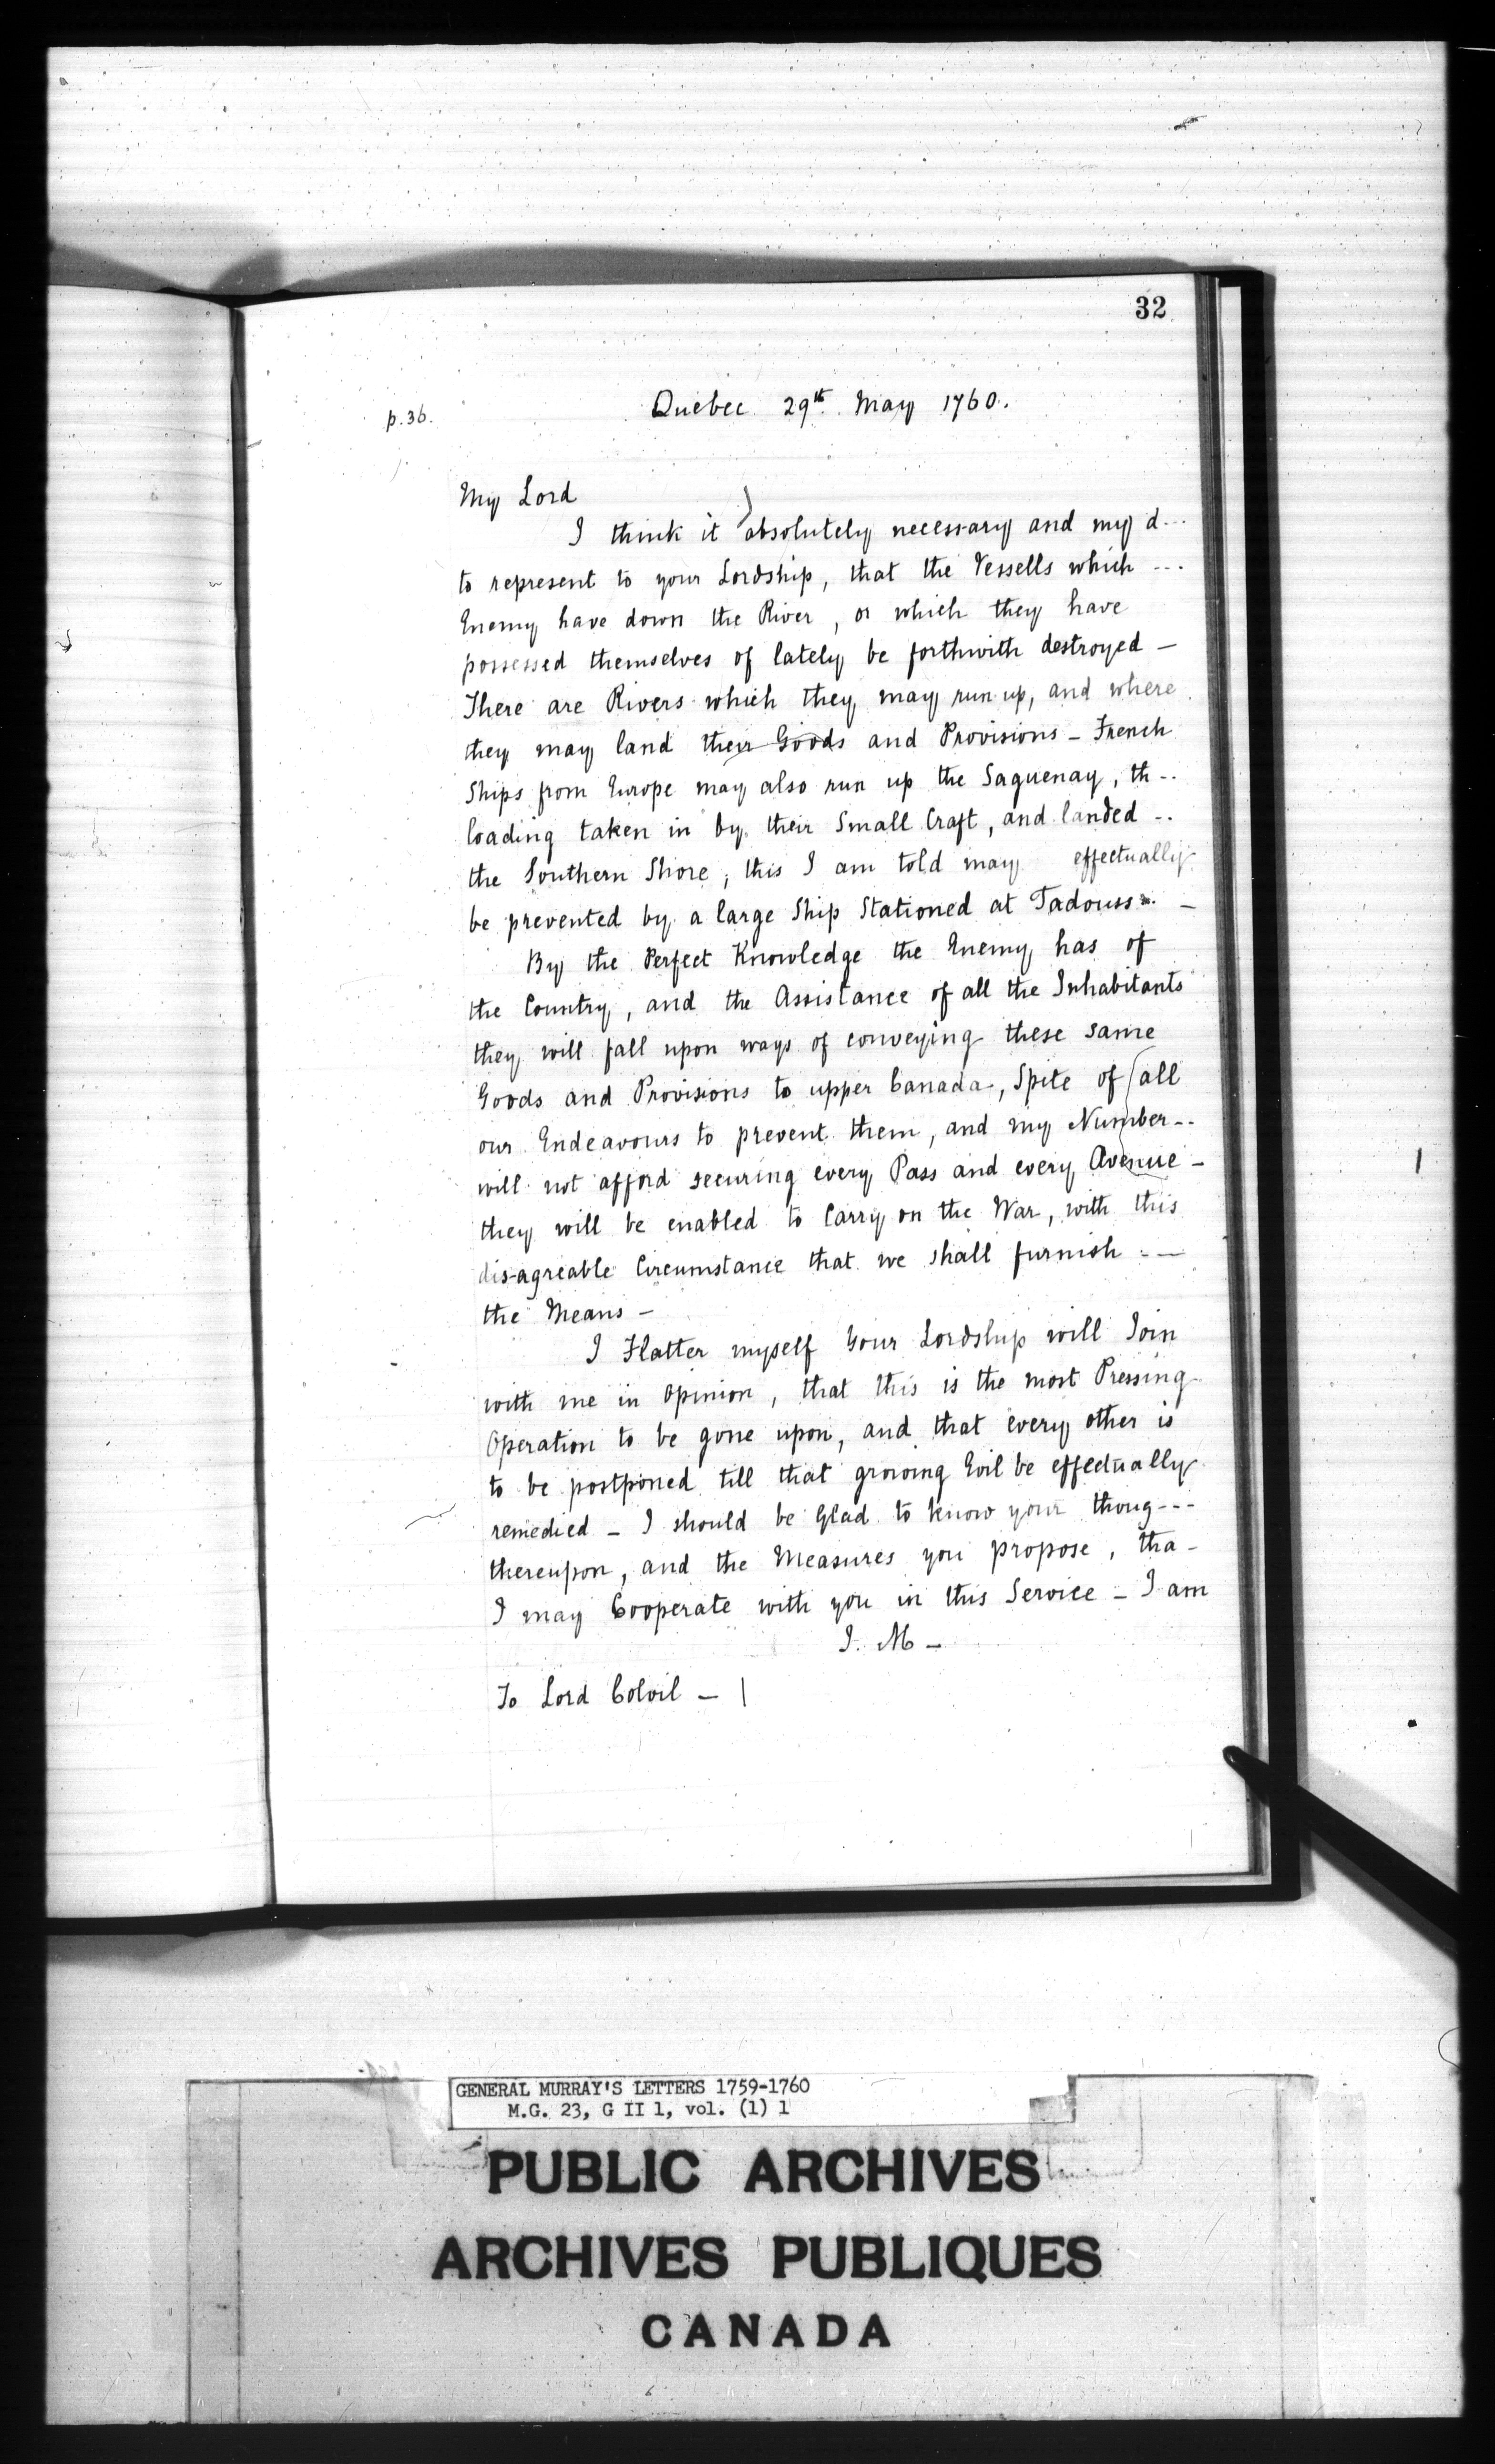 32
p. 36.
Quebec 29th. May 1760.
My Lord
I think it absolutely necessary and my d...
to represent to your Lordship, that the Vessells which ...
Enemy have down the River, or which they have
possessed themselves of lately be forthwith destroyed —
There are Rivers which they may run up, and where
they may land their Goods and Provisions — French
Ships from Europe may also run up the Saguenay, th..
loading taken in by their Small Craft, and landed ..
the Southern Shore; this I am told may effectually
be prevented by a large Ship Stationed at Tadouss.. —
By the Perfect Knowledge the Enemy has of
the Country, and the Assistance of all the Inhabitants
they will fall upon ways of conveying these same
Goods and Provisions to upper Canada, Spite of all
our Endeavours to prevent them, and my Number..
will not afford securing every Pass and every Avenue —
they will be enabled to Carry on the War, with this
dis-agreable Circumstance that we shall furnish ..—
the Means —
I Flatter myself Your Lordship will Join
with me in Opinion, that this is the most Pressing
Operation to be gone upon, and that every other is
to be postponed till that growing Evil be effectually
remedied — I should be Glad to know your thoug...
thereupon, and the Measures you propose, tha-
I may Cooperate with you in this Service — I am
J. M —
To Lord Colvil —
GENERAL MURRAY'S LETTERS 1759-1760
M.G. 23, G II 1, vol. (1) 1
PUBLIC ARCHIVES
ARCHIVES PUBLIQUES
CANADA